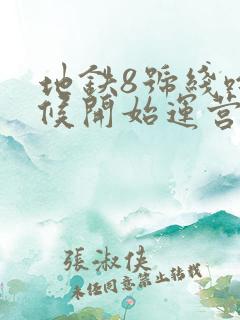 地鉄8號綫
候開始運營
張淑俠
未经同意禁止转载